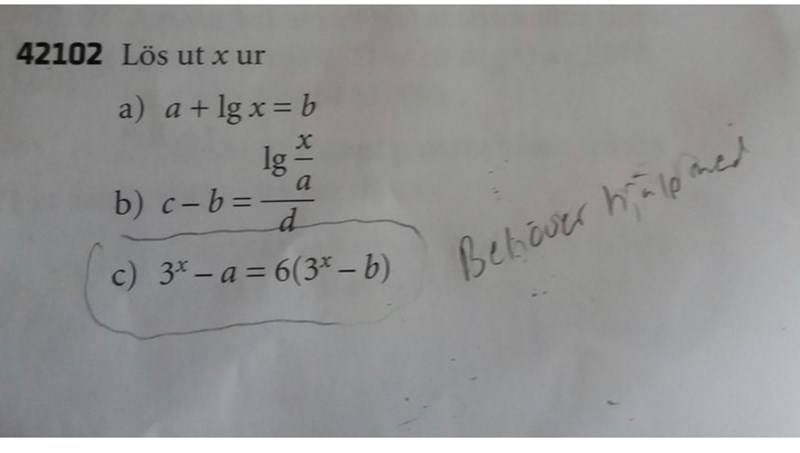 42102 Lös ut x ur
a) a + lg x = b
b) c – b = lg x/a / d
c) 3ˣ – a = 6(3ˣ – b)
Behöver hjälp med